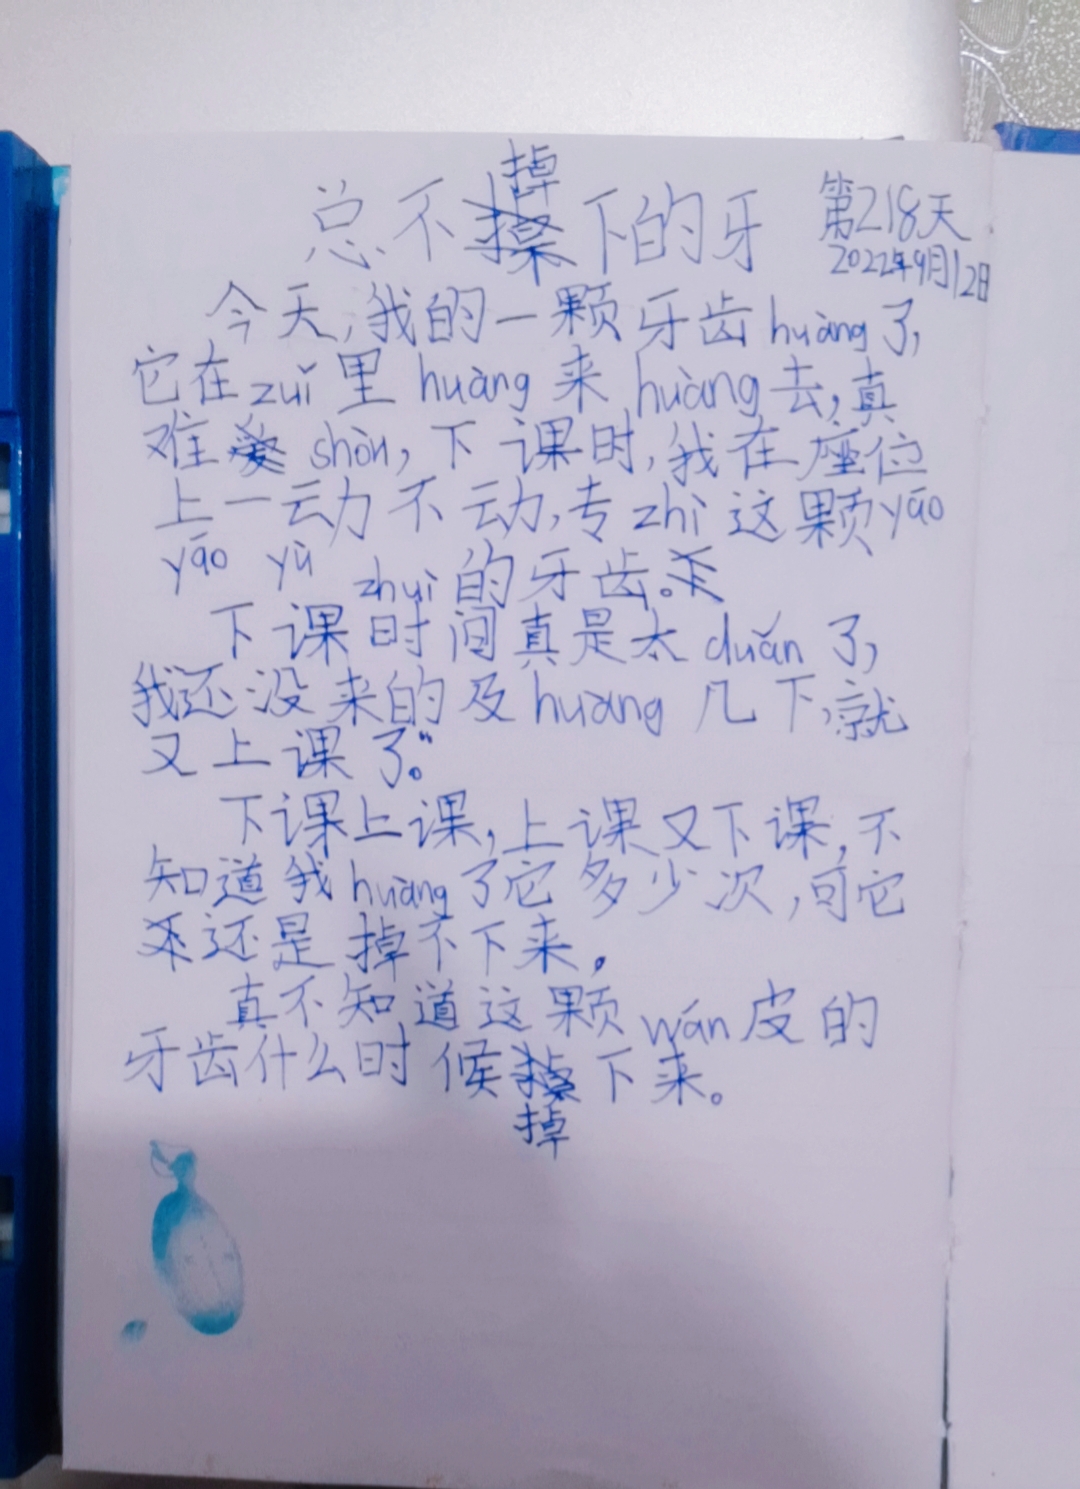 总不掉下的牙
第218天
2022年9月12日
今天,我的一颗牙齿huàng了,
它在zuǐ里huàng来huàng去,真
难shòu,下课时,我在座位
上一动不动,专zhì这颗yāo
yāo yù zhuì的牙齿。
下课时间真是太duǎn了,
我还没来的及huàng几下,就
又上课了。
下课上课,上课又下课,不
知道我huàng了它多少次,可它
还是掉不下来。
真不知道这颗wán皮的
牙齿什么时候掉下来。